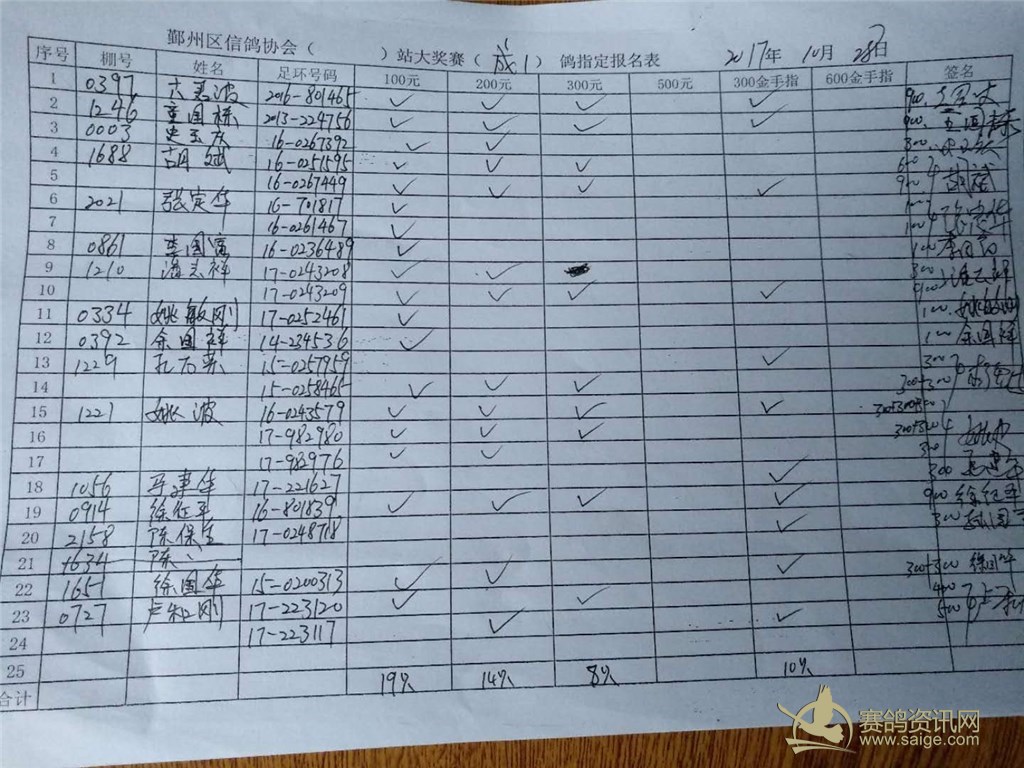 鄞州区信鸽协会（ ）站大奖赛（成1）鸽指定报名表 2017年10月28日
序号 棚号 姓名 足环号码 100元 200元 300元 500元 300金手指 600金手指 签名
1 0397 2016-801465 ✓ ✓ ✓ ✓ 900
2 1246 童国栋 2013-224756 ✓ ✓ ✓ ✓ 900 童国栋
3 0003 16-0267392 ✓ ✓ 300
4 1688 胡斌 16-0251595 ✓ ✓ ✓ 600 胡斌
5 16-0267449 ✓ ✓ ✓ ✓ 900
6 2021 张定华 16-701817 ✓ 100
7 16-0261467 ✓ 100
8 0861 李国富 16-0236489 ✓ 100
9 1210 潘志祥 17-0243208 ✓ ✓ 300
10 17-0243209 ✓ ✓ ✓ ✓ 900
11 0334 姚敏刚 17-0252461 ✓ 100 姚敏刚
12 0392 余国祥 14-234536 ✓ 100 余国祥
13 1229 15-0257959 ✓ 300
14 15-0258465 ✓ ✓ ✓ 300+300
15 1221 姚波 16-0243579 ✓ ✓ ✓ ✓ 300+300+300
16 17-982980 ✓ ✓ ✓ 300+300 姚波
17 17-982976 ✓ ✓ 300
18 1056 17-221627 ✓ 300
19 0914 16-801839 ✓ ✓ ✓ ✓ 900
20 2158 陈保 17-0248718 ✓ 300
21 1634 陈
22 1651 徐国华 15-0200313 ✓ ✓ ✓ 300+300 徐国华
23 0727 卢和刚 17-223120 ✓ ✓ 400
24 17-223117 ✓ ✓ 500
25
合计 19只 14只 8只 10只
赛鸽资讯网
www.saige.com